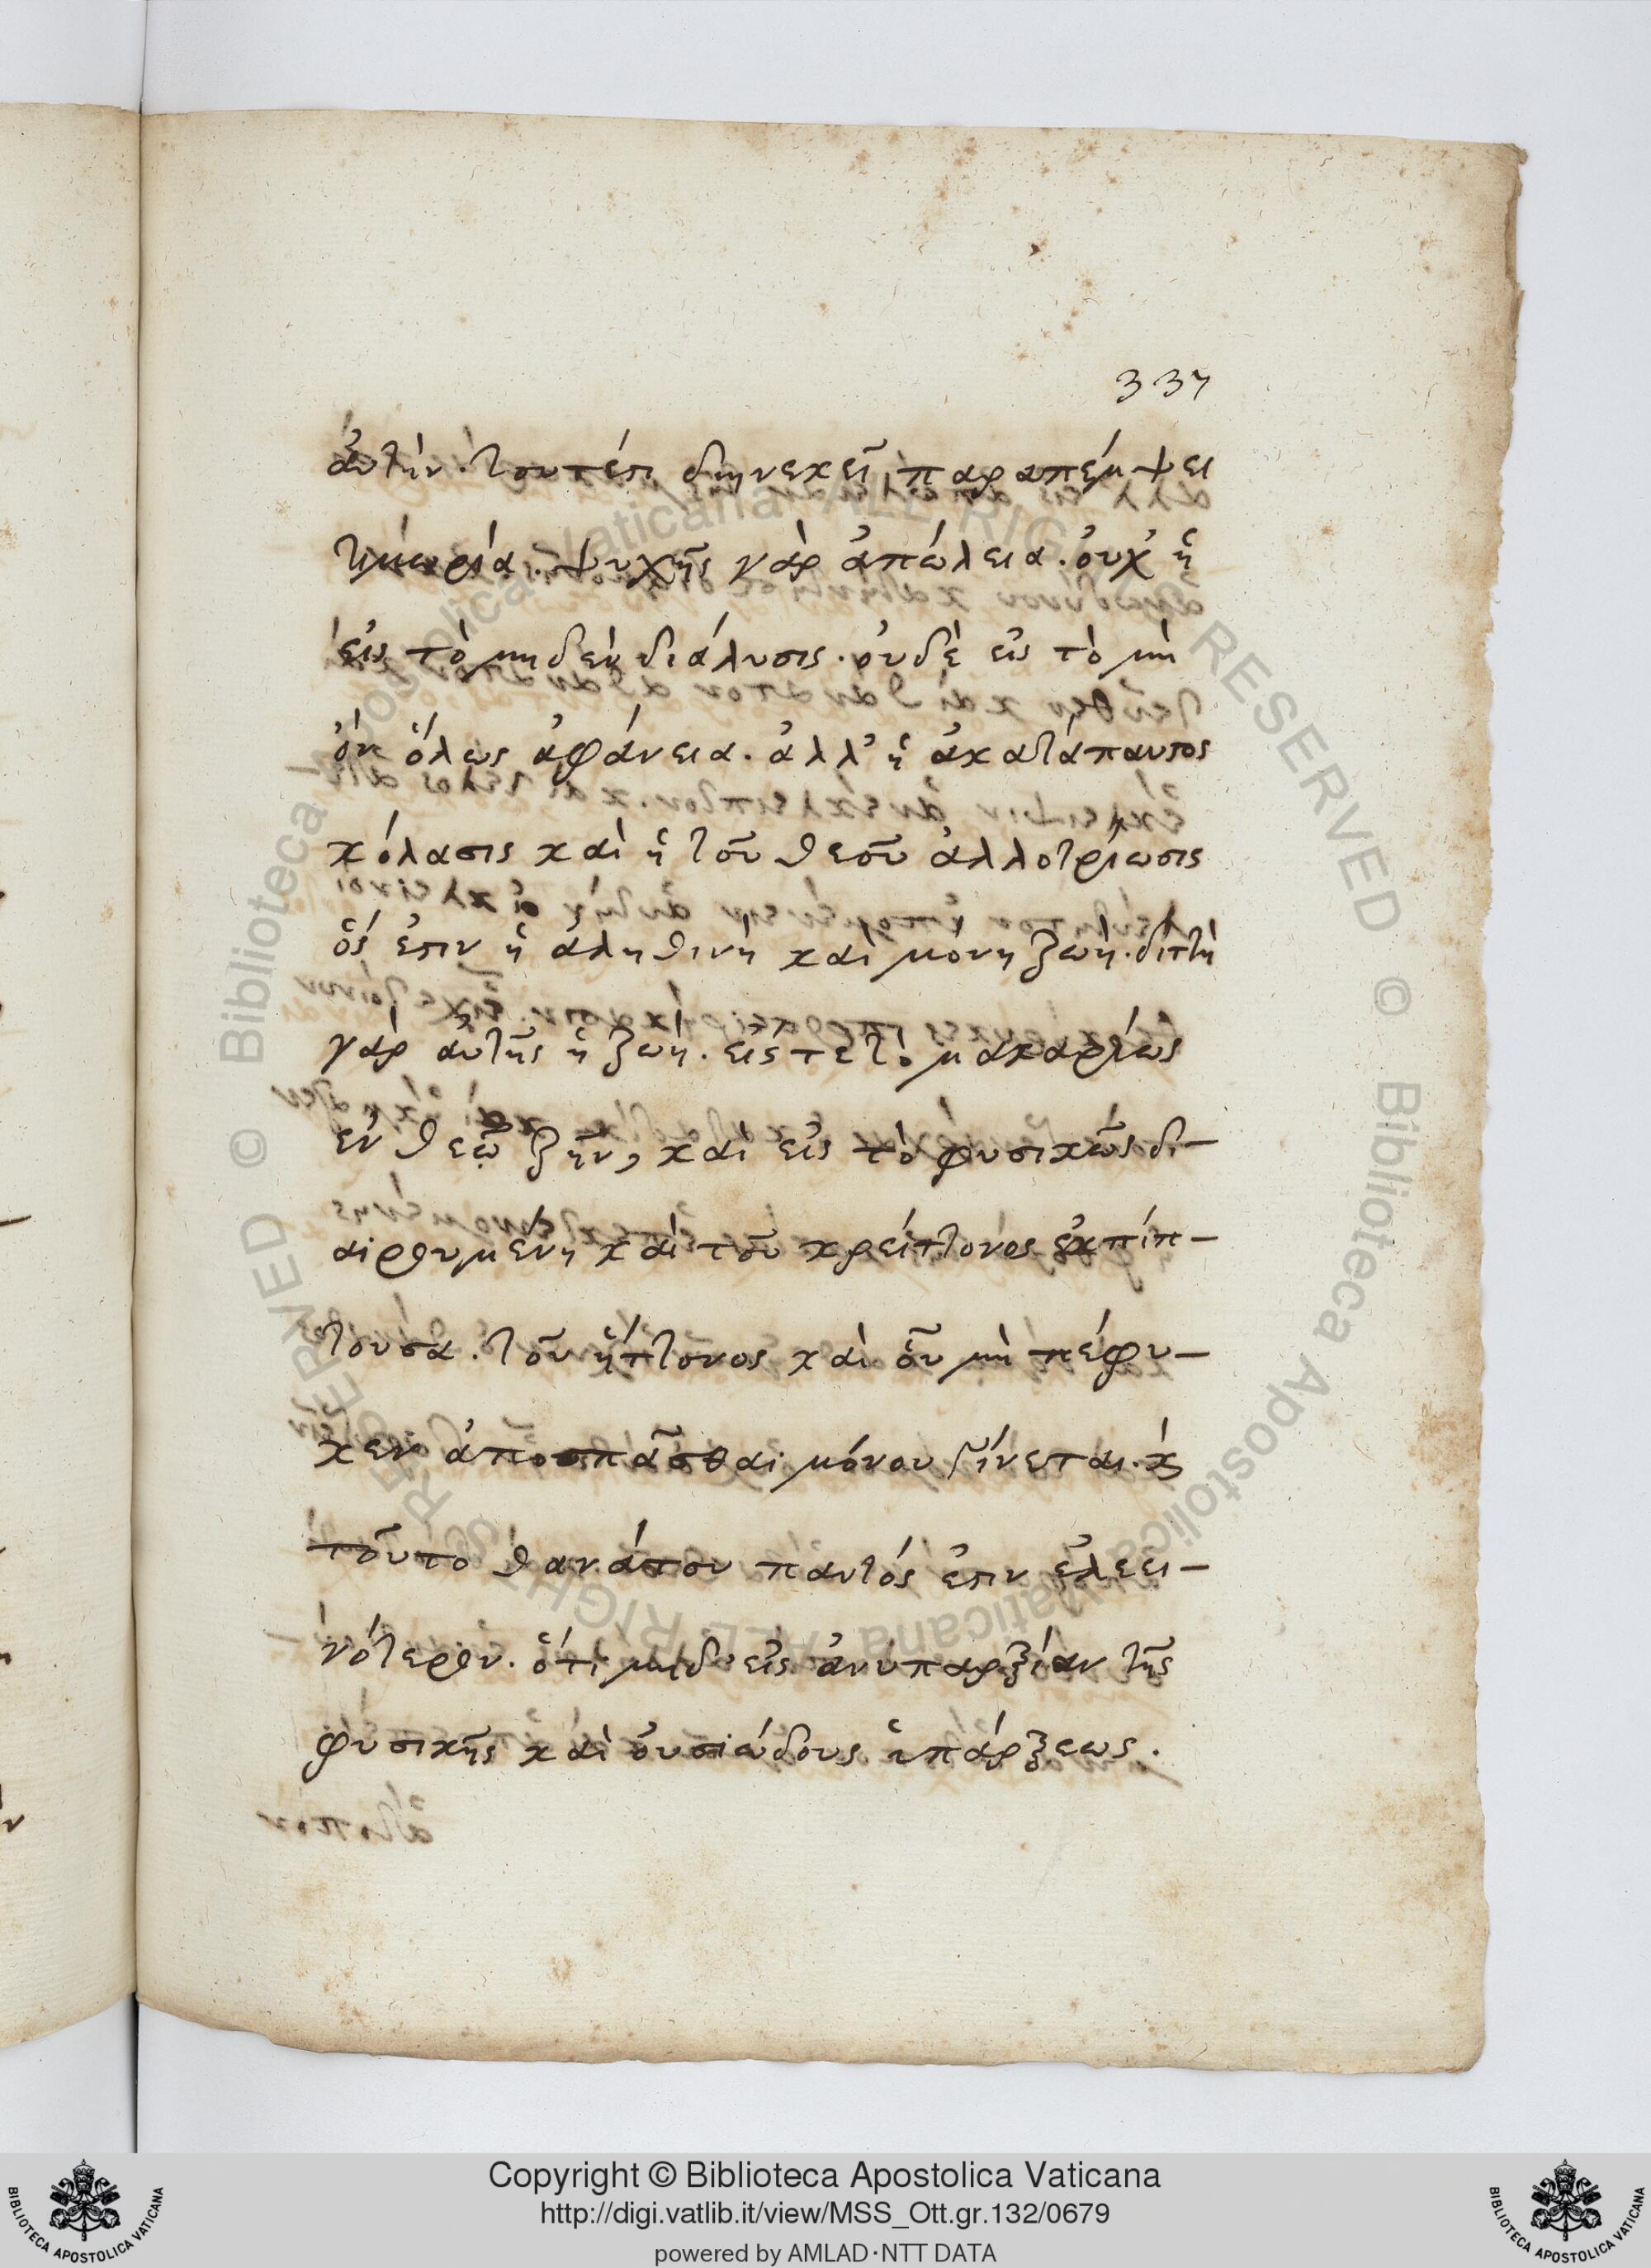 337
ἀυτήν. τουτέστι διηνεκεῖ παραπέμψει
τιμωρία. ψυχῆς γὰρ ἀπώλεια. ὀυχ' ἡ
εἰς τὸ μηδὲν διάλυσις. ὀυδὲ εἰς τὸ μὴ
ὂν ὅλως ἀφάνεια. ἀλλ' ἡ ἀκατάπαυστος
κόλασις καὶ ἡ τοῦ θεοῦ ἀλλοτρίωσις
ὅς ἐστιν ἡ ἀληθινὴ καὶ μόνη ζωή. διττὴ
γὰρ ἀυτῆς ἡ ζωή. εἴς τε τὸ μακαρίως
ἐν θεῷ ζῆν, καὶ εἰς τὸ φυσικῶς δι-
αιρουμένη καὶ τοῦ κρείττονος ἐκπίπ-
τουσα. τοῦ ἥττονος καὶ οὗ μὴ πέφυ-
κεν ἀποσπᾶσθαι μόνου γίνεται. κ
τοῦτο θανάτου παντός ἐστιν ἐλεει-
νότερον. ὅτι μηδ' εἰς ἀνυπαρξίαν τῆς
φυσικῆς καὶ ὀυσιώδους ὑπάρξεως.
Copyright © Biblioteca Apostolica Vaticana
http://digi.vatlib.it/view/MSS_Ott.gr.132/0679
powered by AMLAD·NTT DATA